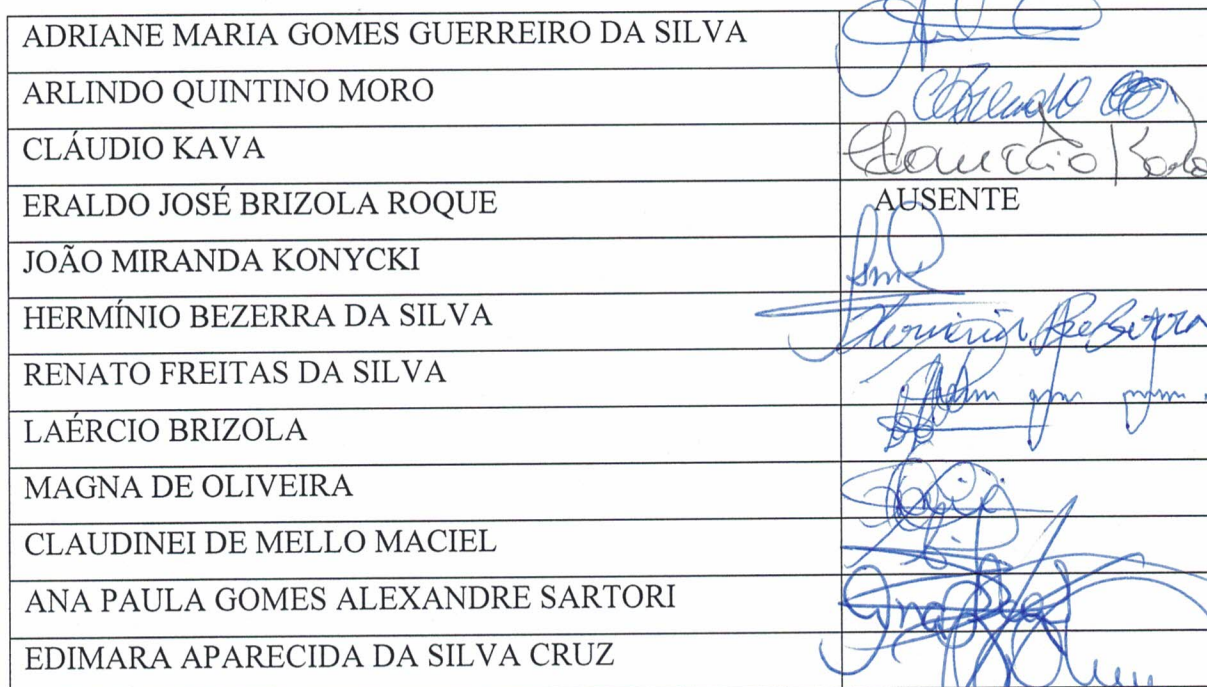 ADRIANE MARIA GOMES GUERREIRO DA SILVA
ARLINDO QUINTINO MORO
CLÁUDIO KAVA
ERALDO JOSÉ BRIZOLA ROQUE AUSENTE
JOÃO MIRANDA KONYCKI
HERMÍNIO BEZERRA DA SILVA
RENATO FREITAS DA SILVA
LAÉRCIO BRIZOLA
MAGNA DE OLIVEIRA
CLAUDINEI DE MELLO MACIEL
ANA PAULA GOMES ALEXANDRE SARTORI
EDIMARA APARECIDA DA SILVA CRUZ